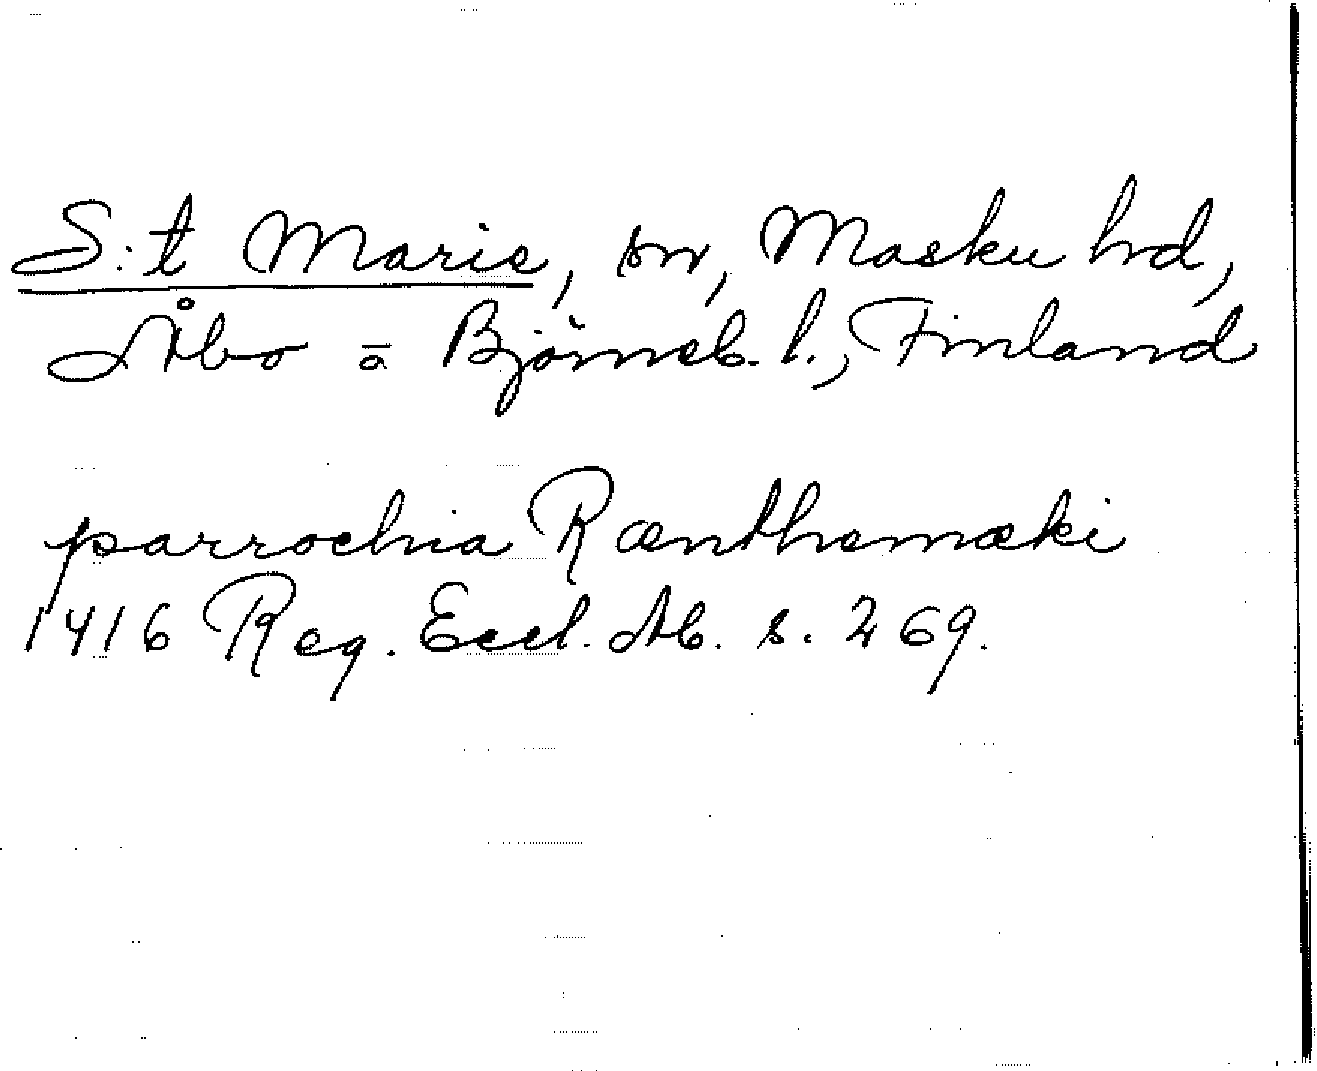 S:t Marie, sn, Masku hd,
Åbo o Björneb. l., Finland
parrochia Rænthemæki
1416 Reg. Eccl. Ab. s. 269.